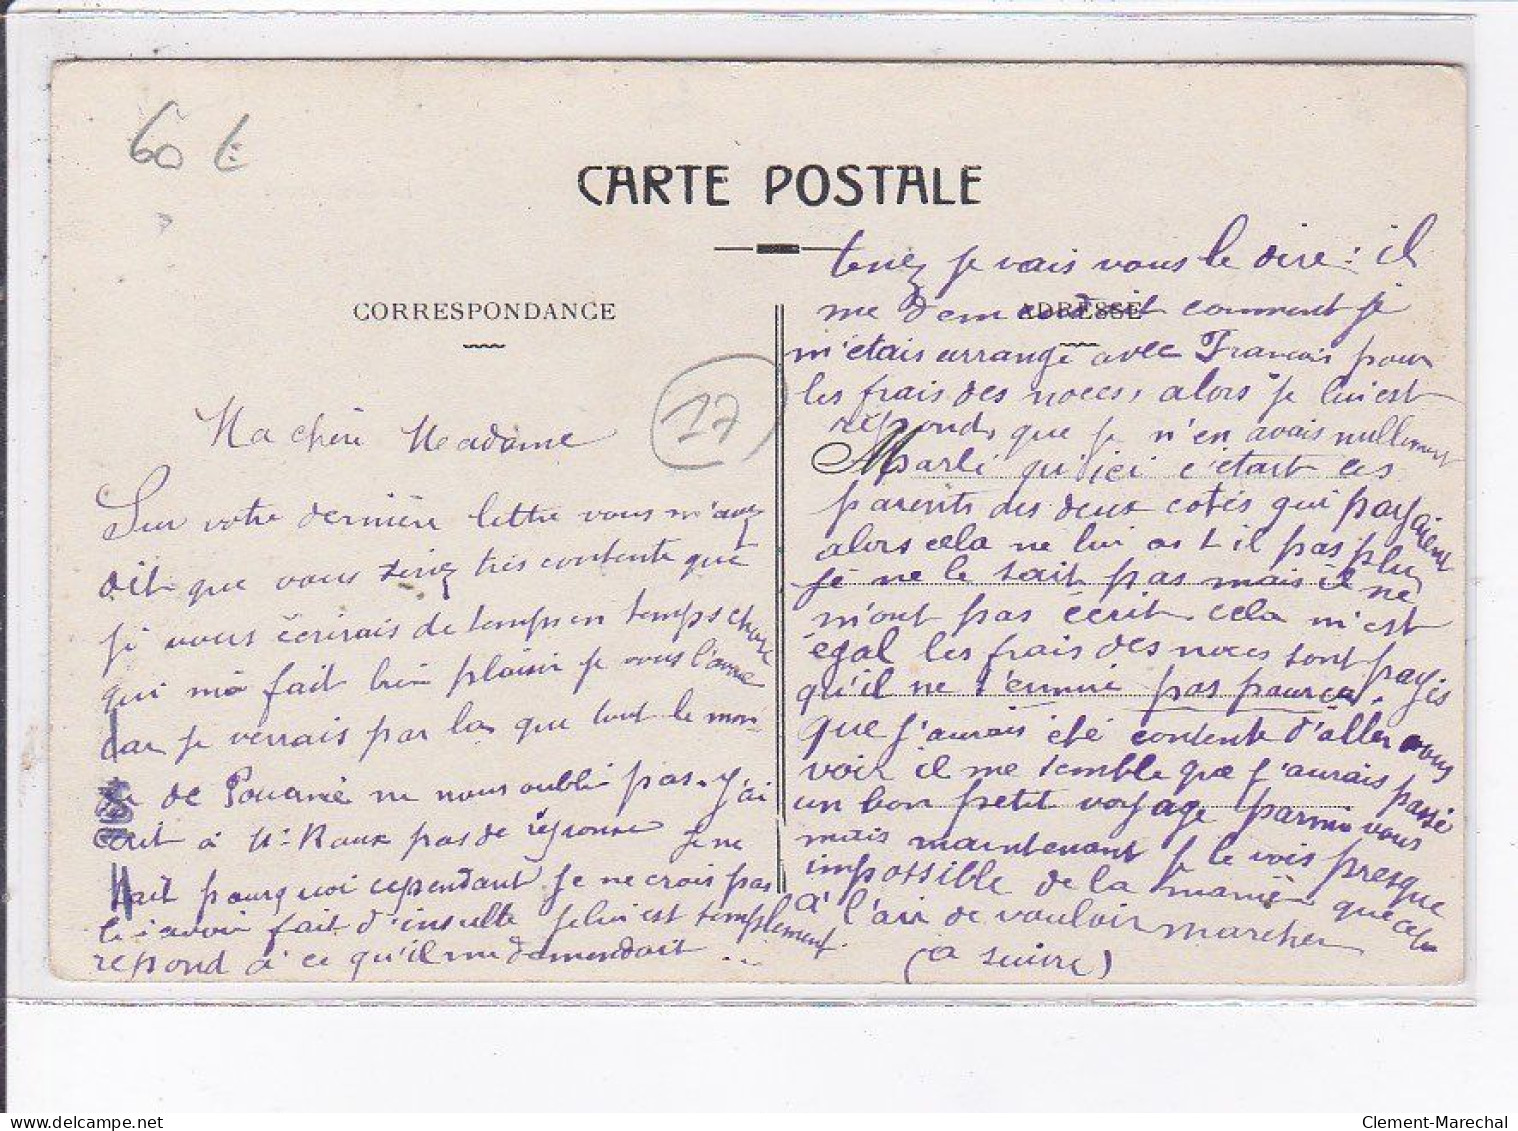 60 €
CARTE POSTALE
CORRESPONDANCE
ADRESSE
17
Ma chère Madame
Sur votre dernière lettre vous m'avez
dit que vous seriez très contente que
je vous écrirais de temps en temps chose
qui me fait bien plaisir je vous l'avoue
car je verrais par la que tout le mon
de de Pouancé ne nous oublie pas. J'ai
écrit à Mr Roux pas de réponse je ne
sait pourquoi cependant je ne crois pas
l'avoir fait d'insulte je lui est semplement
repond à ce qu'il me demendait ...
tenez je vais vous le dire : il
me demendait comment je
m'étais arrangé avec Francois pour
les frais des noces, alors je lui est
répond, que je n'en avais nullement
parlé qu'ici c'était les
parents des deux cotés qui payaient
alors cela ne lui as t il pas plu
je ne le sait pas mais il ne
m'ont pas écrit cela m'est
égal les frais des noces sont payés
qu'il ne s'ennuie pas pour ça.
que j'aurais été contente d'aller vous
voir il me semble que j'aurais passé
un bon petit voyage parmi vous
mais maintenant je le vois presque
impossible de la manière que cela
a l'air de vouloir marcher
(a suivre)
Clement-Marechal